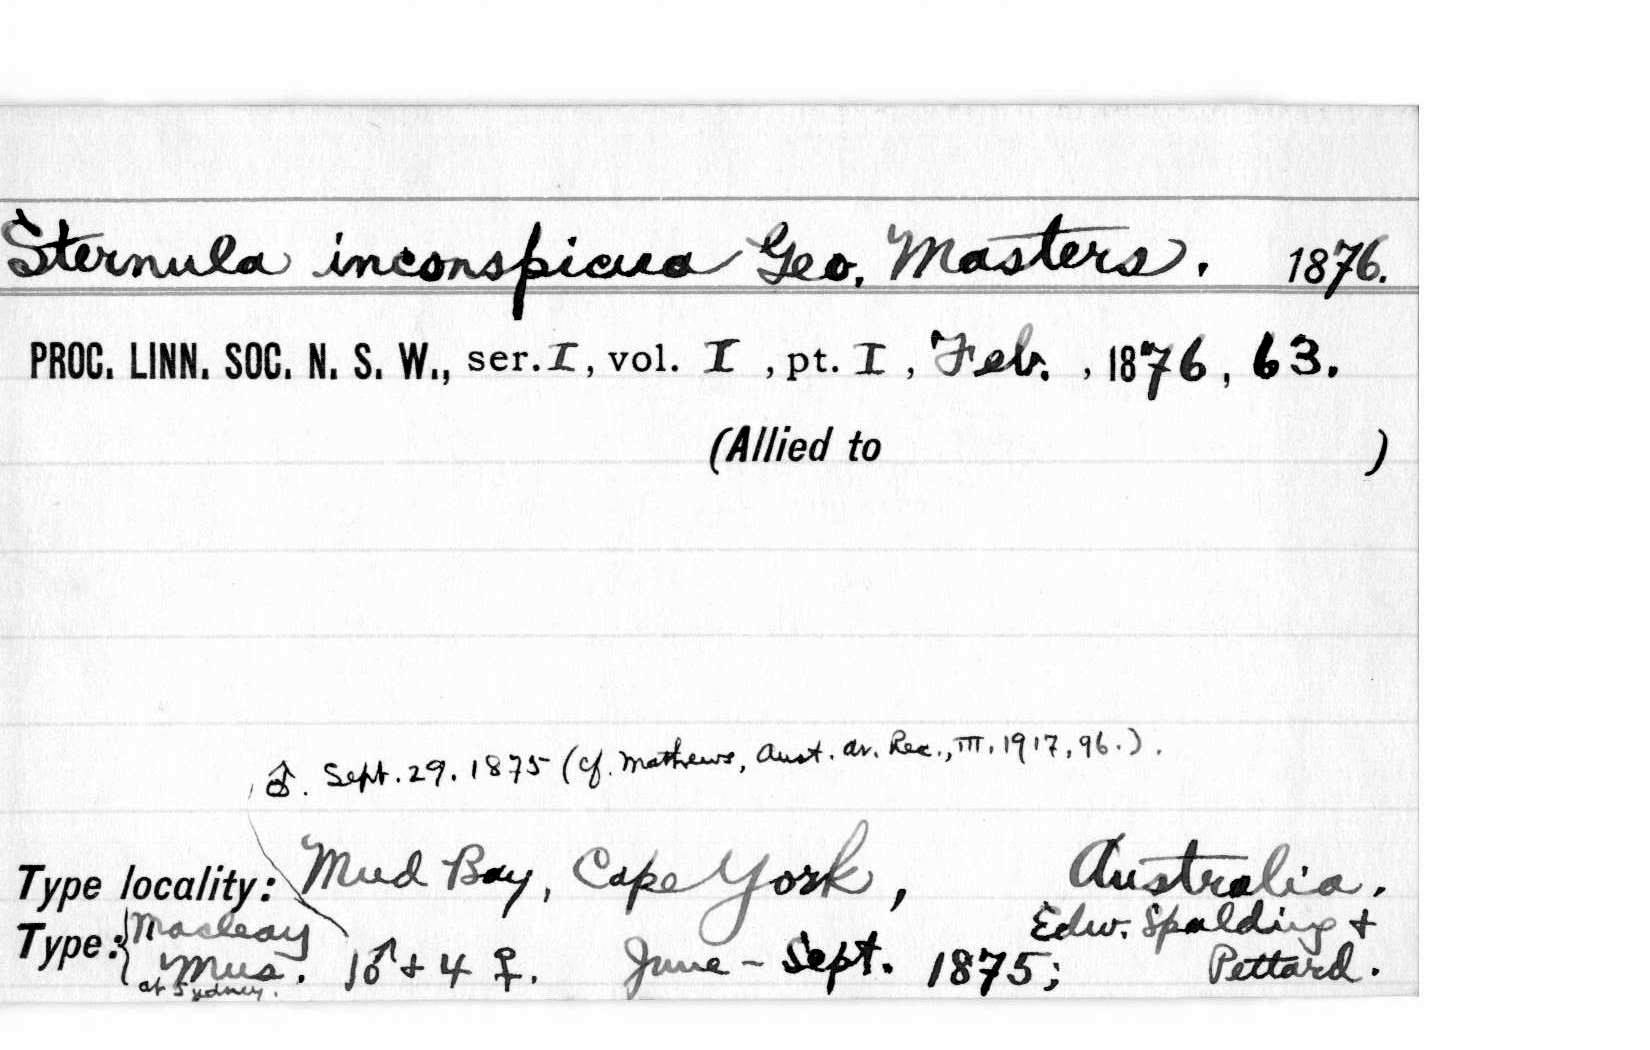 Sternula inconspicua Geo. Masters. 1876.
PROC. LINN. SOC. N. S. W., ser. I, vol. I, pt. I, Feb., 1876, 63.
(Allied to )
♂. Sept. 29. 1875 (cf. Mathews, Aust. Av. Rec., III, 1917, 96.).
Type locality: Mud Bay, Cape York, Australia.
Type: { Macleay Mus. at Sydney. 1♂ + 4 ♀. June - Sept. 1875; Edw. Spalding + Pettard.